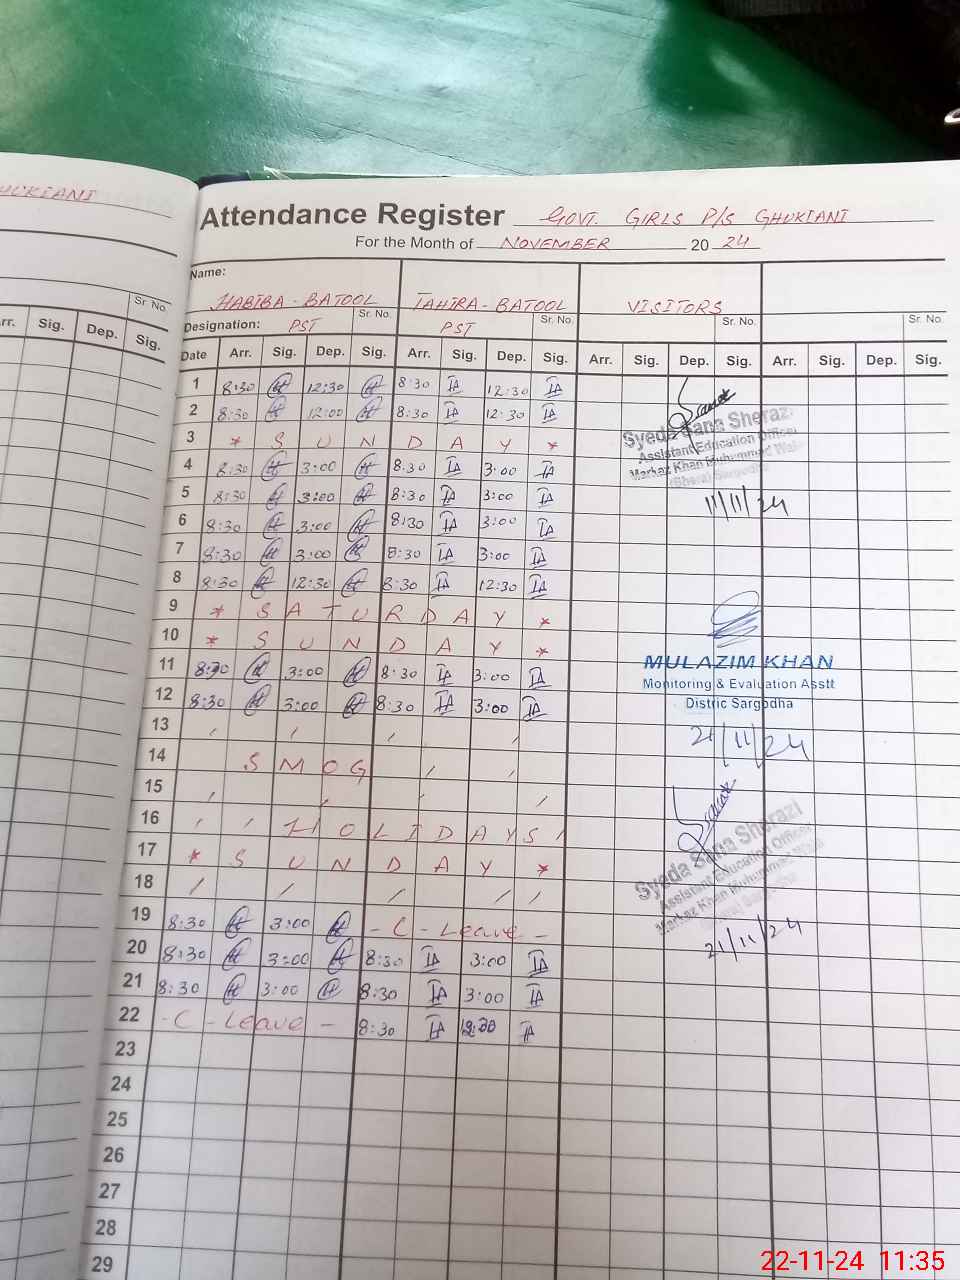 HUKIANI
Attendance Register GOVT. GIRLS P/S GHUKIANI
For the Month of NOVEMBER 20 24
Name:
HABIBA - BATOOL TAHIRA - BATOOL VISITORS
Sr. No. Sr. No. Sr. No. Sr. No. Sr. No.
Designation: PST PST
Arr. Sig. Dep. Sig. Date Arr. Sig. Dep. Sig. Arr. Sig. Dep. Sig. Arr. Sig. Dep. Sig. Arr. Sig. Dep. Sig.
1 8:30 H 12:30 H 8:30 IA 12:30 IA
2 8:30 H 12:00 H 8:30 IA 12:30 IA
3 * S U N D A Y *
4 8:30 H 3:00 H 8:30 IA 3:00 IA
5 8:30 H 3:00 H 8:30 IA 3:00 IA
6 8:30 H 3:00 H 8:30 IA 3:00 IA
7 8:30 H 3:00 H 8:30 IA 3:00 IA
8 8:30 H 12:30 H 8:30 IA 12:30 IA
9 * S A T U R D A Y *
10 * S U N D A Y *
11 8:30 H 3:00 H 8:30 IA 3:00 IA
12 8:30 H 3:00 H 8:30 IA 3:00 IA
13
14 S M O G
15
16 H O L I D A Y S
17 * S U N D A Y *
18
19 8:30 H 3:00 H - C - Leave -
20 8:30 H 3:00 H 8:30 IA 3:00 IA
21 8:30 H 3:00 H 8:30 IA 3:00 IA
22 - C - Leave - 8:30 IA 12:30 IA
23
24
25
26
27
28
29
Syeda Sana Sherazi
Assistant Education Officer
Markaz Khan Muhammad
11/11/24
MULAZIM KHAN
Monitoring & Evaluation Asstt
Distric Sargodha
21/11/24
Syeda Sana Sherazi
Assistant Education Officer
Markaz Khan Muhammad
21/11/24
22-11-24 11:35